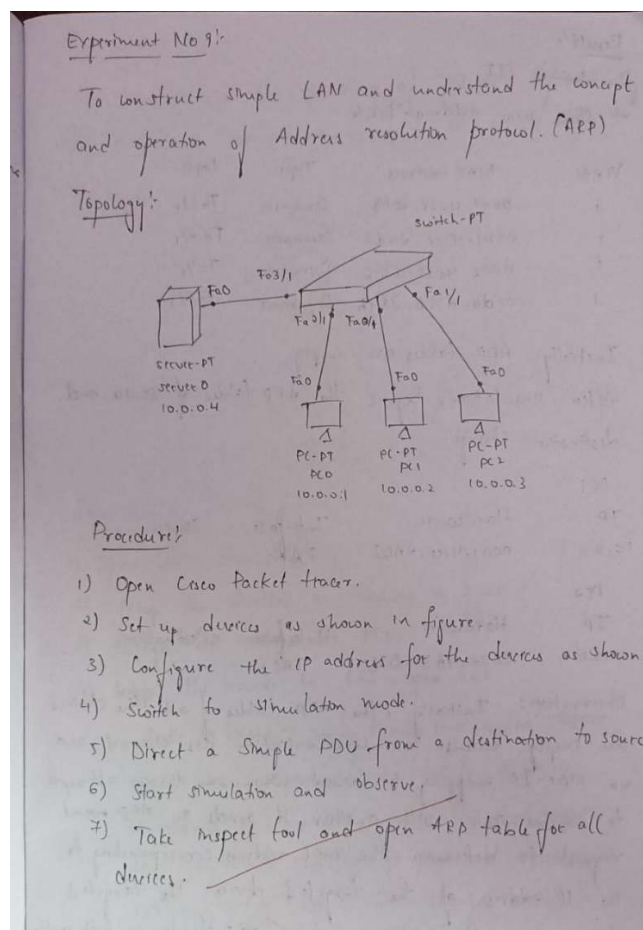 Experiment No 9:-
To construct simple LAN and understand the concept
and operation of Address resolution protocol. (ARP)
Topology:-
switch-PT
Fa0 Fa3/1 Fa1/1
Fa2/1 Fa0/1
server-PT
server0
10.0.0.4
Fa0 Fa0 Fa0
PC-PT PC-PT PC-PT
PC0 PC1 PC2
10.0.0.1 10.0.0.2 10.0.0.3
Procedure:
1) Open Cisco Packet tracer.
2) Set up devices as shown in figure.
3) Configure the IP address for the devices as shown
4) Switch to simulation mode.
5) Direct a Simple PDU from a destination to sourc
6) Start simulation and observe.
7) Take inspect tool and open ARP table for all
devices.